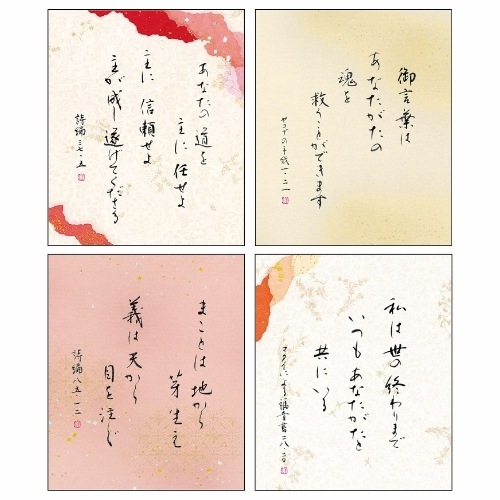 あなたの道を
主に任せよ
主に信頼せよ
主が成し遂げてくださる
詩編三七・五
御言葉は
あなたがたの
魂を
救うことができます
ヤコブの手紙一・二一
まことは地から
芽生え
義は天から
目を注ぐ
詩編八五・一二
私は世の終わりまで
いつもあなたがたと
共にいる
マタイによる福音書二八・二〇